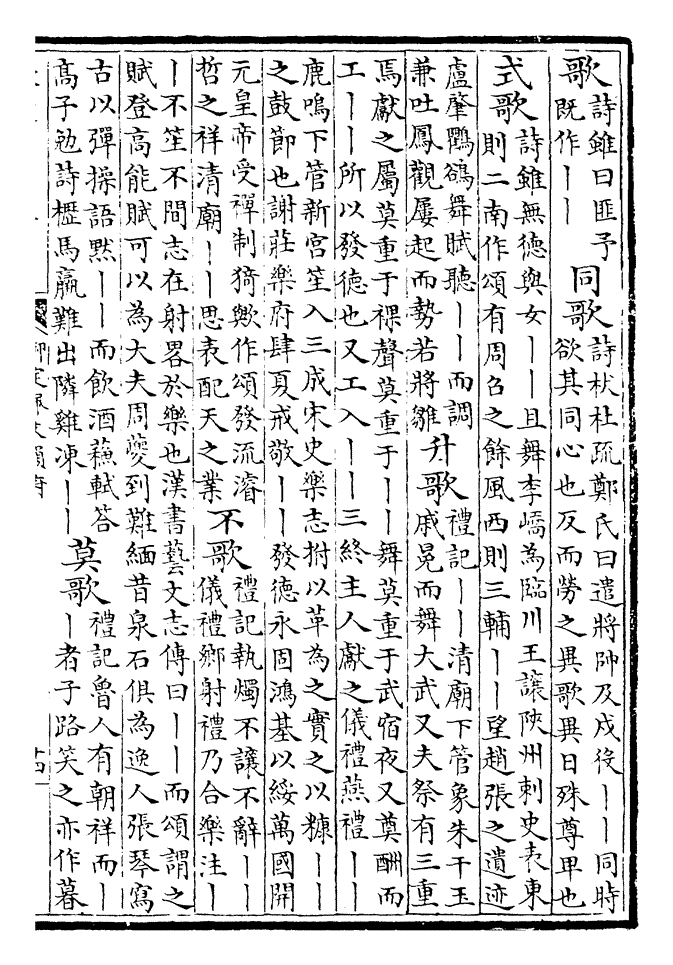 歌
詩雖曰匪予
既作丨丨
同歌
詩杕杜疏鄭氏曰遣將帥及戍役丨丨同時
欲其同心也反而勞之異歌異日殊尊卑也
式歌
詩雖無德與女丨丨且舞李嶠為臨川王讓陝州刺史表東
則二南作頌有周召之餘風西則三輔丨丨望趙張之遺迹
盧肇鸜鵒舞賦聽丨丨而調
兼吐鳳觀屢起而勢若將雛
升歌
禮記丨丨清廟下管象朱干玉
戚冕而舞大武又夫祭有三重
焉獻之屬莫重于祼聲莫重于丨丨舞莫重于武宿夜又奠酬而
工丨丨所以發德也又工入丨丨三終主人獻之儀禮燕禮丨丨
鹿鳴下管新宮笙入三成宋史樂志拊以革為之實之以糠丨丨
之鼓節也謝莊樂府肆夏戒敬丨丨發德永固鴻基以綏萬國開
元皇帝受禪制猗歟作頌發流濬
哲之祥清廟丨丨思表配天之業
不歌
禮記執燭不讓不辭丨丨
儀禮鄉射禮乃合樂注丨丨
丨不笙不間志在射畧於樂也漢書藝文志傳曰丨丨而頌謂之
賦登高能賦可以為大夫周夔到難緬昔泉石俱為逸人張琴寫
古以彈操語默丨丨而飲酒蘇軾答
高子勉詩櫪馬羸難出隣雞凍丨丨
莫歌
禮記魯人有朝祥而丨
丨者子路笑之亦作暮
御定佩文韻府
十四